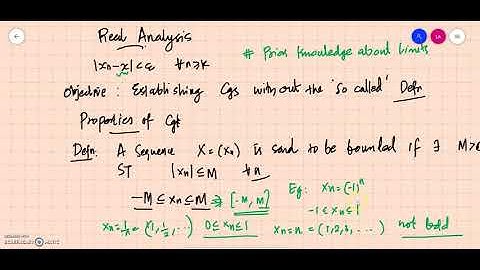 Real Analysis
# Prior knowledge about limits
|xn-x|<ε ∀n≥K
Objective : Establishing Cgs without the 'so called' Defn
Properties of Cgt
Defn: A Sequence X=(xn) is said to be bounded if ∃ M>0
ST |xn|≤M ∀n
-M≤xn≤M ⇒ [-M, M]
Eg: xn=(-1)^n
-1≤xn≤1
xn=1/n = (1, 1/2, ...) 0≤xn≤1
xn=n = (1,2,3, ...) not bdd